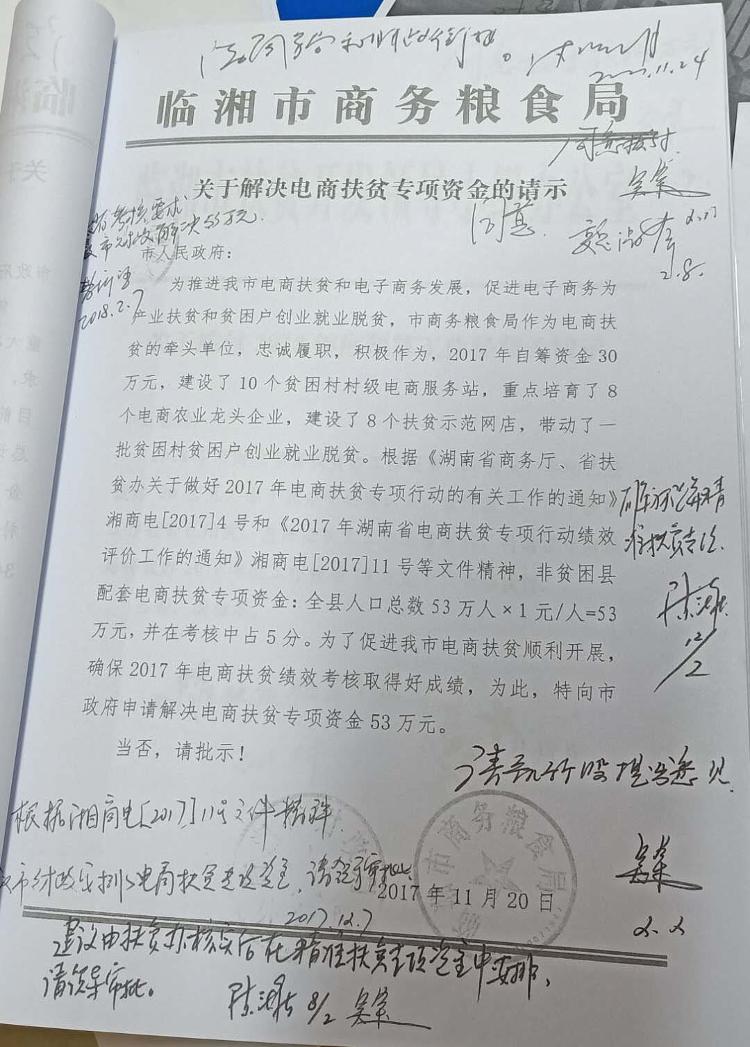 2017.11.24
临湘市商务粮食局
同意拨付.
关于解决电商扶贫专项资金的请示
同意
2.8.
2018.2.7
市人民政府:
为推进我市电商扶贫和电子商务发展，促进电子商务为
产业扶贫和贫困户创业就业脱贫，市商务粮食局作为电商扶
贫的牵头单位，忠诚履职，积极作为，2017年自筹资金30
万元，建设了10个贫困村村级电商服务站，重点培育了8
个电商农业龙头企业，建设了8个扶贫示范网店，带动了一
批贫困村贫困户创业就业脱贫。根据《湖南省商务厅、省扶
贫办关于做好2017年电商扶贫专项行动的有关工作的通知》
湘商电[2017]4号和《2017年湖南省电商扶贫专项行动绩效
评价工作的通知》湘商电[2017]11号等文件精神，非贫困县
配套电商扶贫专项资金：全县人口总数53万人×1元/人=53
万元，并在考核中占5分。为了促进我市电商扶贫顺利开展，
确保2017年电商扶贫绩效考核取得好成绩，为此，特向市
政府申请解决电商扶贫专项资金53万元。
当否，请批示！
12/2
根据湘商电[2017]11号文件精神
2017年11月20日
2017.12.7
建议由扶贫办核实后在精准扶贫专项资金中安排，
请领导审批。
8/2